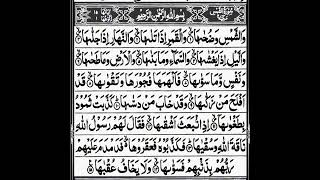 بِسْمِ اللهِ الرَّحْمٰنِ الرَّحِيْمِ
وَالشَّمْسِ وَضُحٰهَا ۝ وَالْقَمَرِ اِذَا تَلٰهَا ۝ وَالنَّهَارِ اِذَا جَلّٰهَا ۝
وَالَّيْلِ اِذَا يَغْشٰهَا ۝ وَالسَّمَآءِ وَمَا بَنٰهَا ۝ وَالْاَرْضِ وَمَا طَحٰهَا ۝
وَنَفْسٍ وَّمَا سَوّٰهَا ۝ فَاَلْهَمَهَا فُجُوْرَهَا وَتَقْوٰهَا ۝ قَدْ
اَفْلَحَ مَنْ زَكّٰهَا ۝ وَقَدْ خَابَ مَنْ دَسّٰهَا ۝ كَذَّبَتْ ثَمُوْدُ
بِطَغْوٰهَا ۝ اِذِ انْۢبَعَثَ اَشْقٰهَا ۝ فَقَالَ لَهُمْ رَسُوْلُ اللهِ
نَاقَةَ اللهِ وَسُقْيٰهَا ۝ فَكَذَّبُوْهُ فَعَقَرُوْهَا فَدَمْدَمَ عَلَيْهِمْ
رَبُّهُمْ بِذَنْۢبِهِمْ فَسَوّٰهَا ۝ وَلَا يَخَافُ عُقْبٰهَا ۝